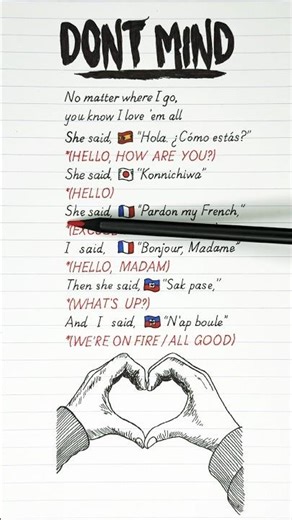 DONT MIND
No matter where I go,
you know I love 'em all
She said, 🇪🇸 "Hola. ¿Cómo estás?"
*(HELLO, HOW ARE YOU?)
She said, 🇯🇵 "Konnichiwa"
*(HELLO)
She said, 🇫🇷 "Pardon my French,"
I said, 🇫🇷 "Bonjour, Madame"
*(HELLO, MADAM)
Then she said, 🇭🇹 "Sak pase,"
*(WHAT'S UP?)
And I said, 🇭🇹 "N'ap boule"
*(WE'RE ON FIRE / ALL GOOD)